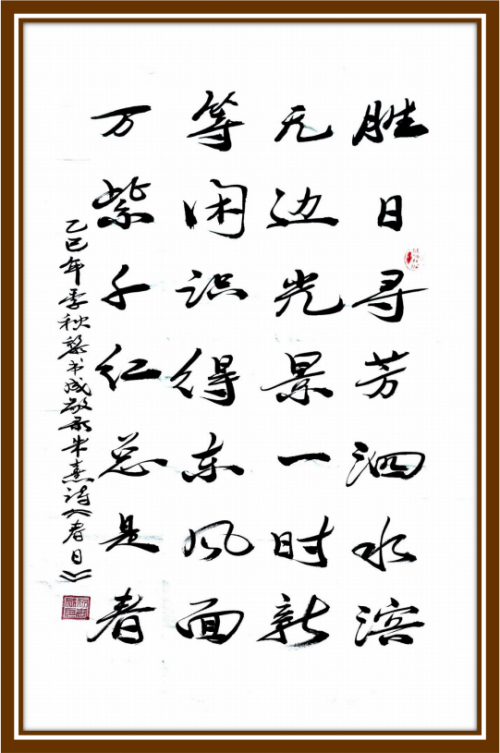 胜日寻芳泗水滨
无边光景一时新
等闲识得东风面
万紫千红总是春
乙巳年季秋 书成敬录朱熹诗《春日》